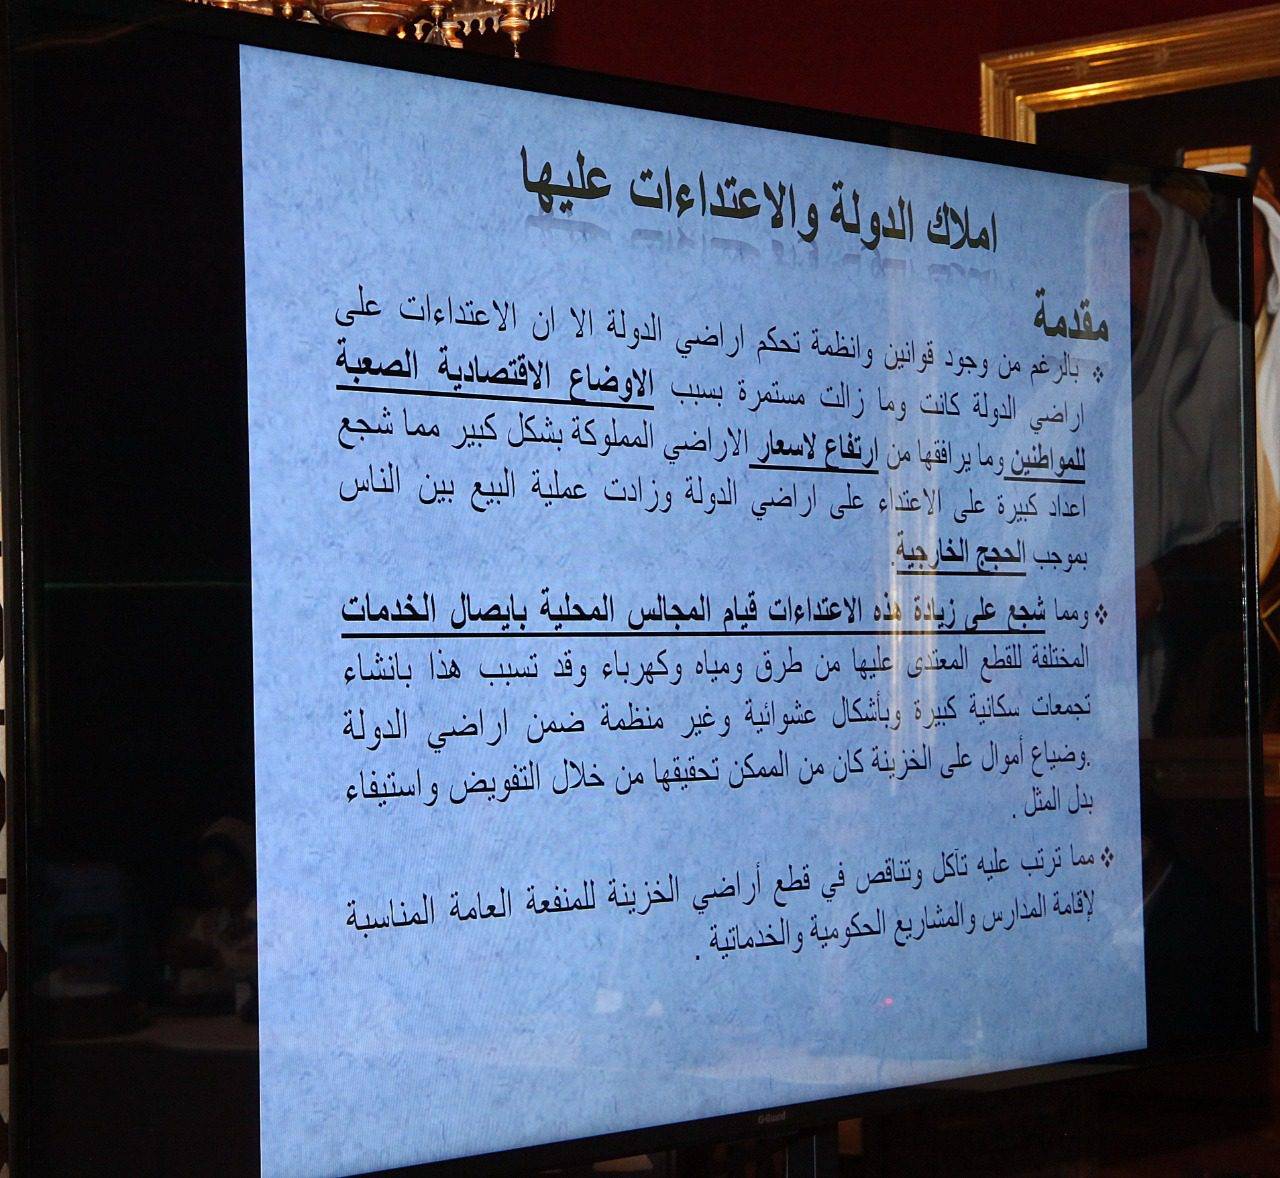 املاك الدولة والاعتداءات عليها
مقدمة
❖ بالرغم من وجود قوانين وانظمة تحكم اراضي الدولة الا ان الاعتداءات على
اراضي الدولة كانت وما زالت مستمرة بسبب الاوضاع الاقتصادية الصعبة
للمواطنين وما يرافقها من ارتفاع لاسعار الاراضي المملوكة بشكل كبير مما شجع
اعداد كبيرة على الاعتداء على اراضي الدولة وزادت عملية البيع بين الناس
بموجب الحجج الخارجية.
❖ ومما شجع على زيادة هذه الاعتداءات قيام المجالس المحلية بايصال الخدمات
المختلفة للقطع المعتدى عليها من طرق ومياه وكهرباء وقد تسبب هذا بانشاء
تجمعات سكانية كبيرة وبأشكال عشوائية وغير منظمة ضمن اراضي الدولة
.وضياع أموال على الخزينة كان من الممكن تحقيقها من خلال التفويض واستيفاء
بدل المثل .
❖ مما ترتب عليه تآكل وتناقص في قطع أراضي الخزينة للمنفعة العامة المناسبة
لإقامة المدارس والمشاريع الحكومية والخدماتية .
G-Guard